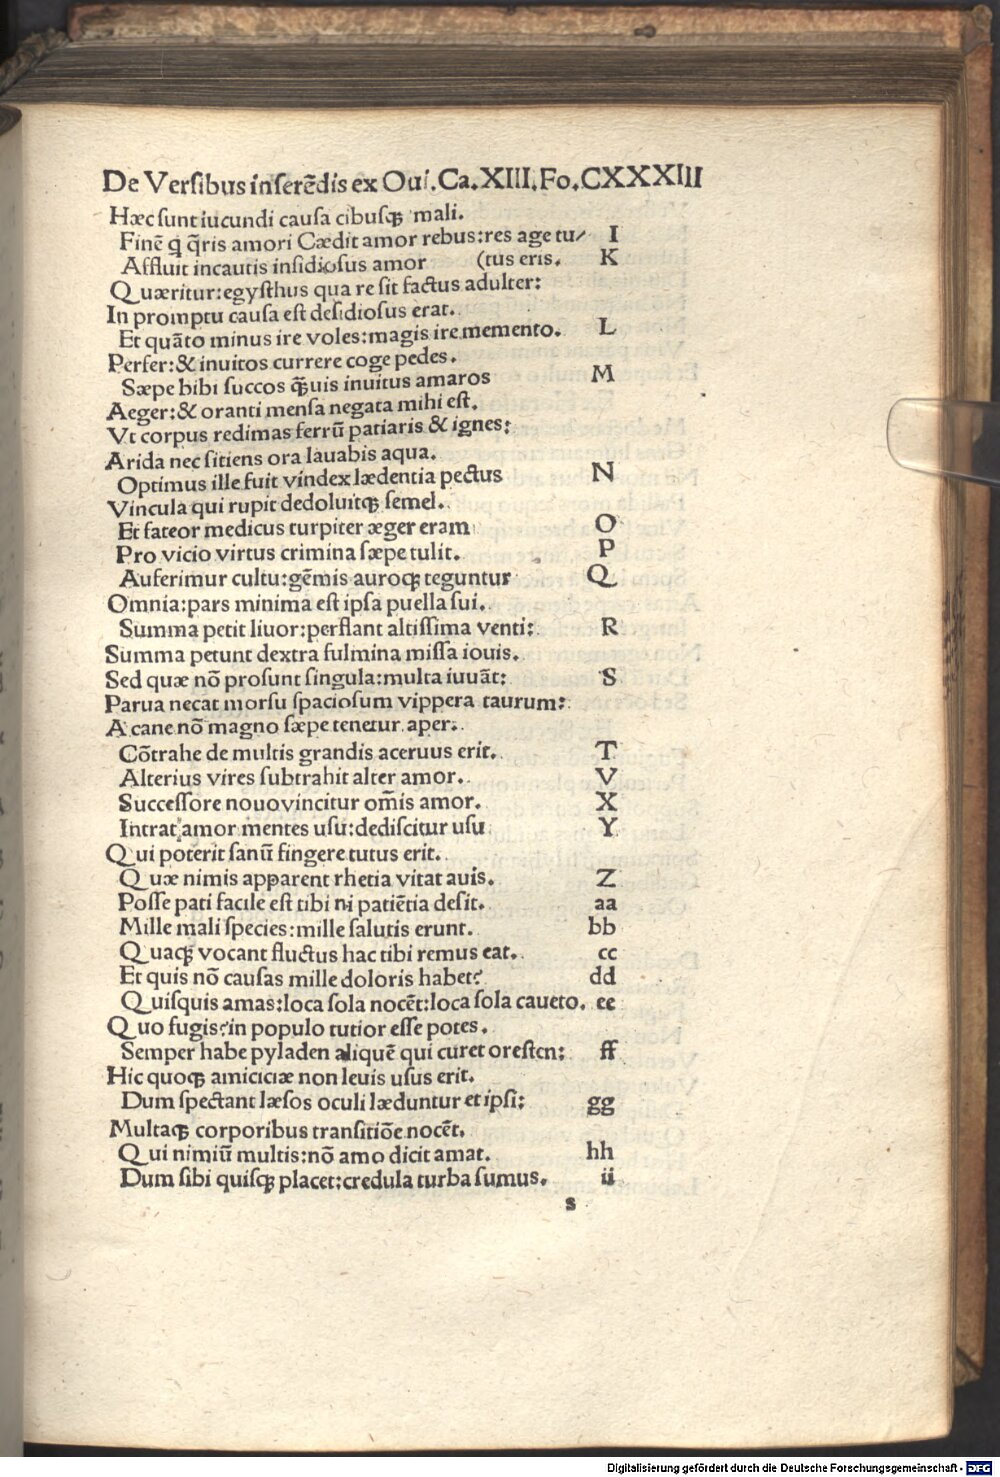 De Verſibus inſerēdis ex Oui.Ca.XIII.Fo.CXXXIII
Hæc ſunt iucundi cauſa cibuſꝗ mali.
Finē ꝗ q̄ris amori Cædit amor rebus:res age tu⸗ I
Affluit incautis inſidioſus amor (tus eris. K
Quæritur:egyſthus qua re ſit factus adulter:
In promptu cauſa eſt deſidioſus erat.
Et quāto minus ire voles:magis ire memento. L
Perfer:& inuitos currere coge pedes.
Sæpe bibi ſuccos q̄uis inuitus amaros M
Aeger:& oranti menſa negata mihi eſt.
Vt corpus redimas ferrū patiaris & ignes:
Arida nec ſitiens ora lauabis aqua.
Optimus ille fuit vindex lædentia pectus N
Vincula qui rupit dedoluitꝗ ſemel.
Et fateor medicus turpiter æger eram O
Pro vicio virtus crimina ſæpe tulit. P
Auferimur cultu:gēmis auroꝗ teguntur Q
Omnia:pars minima eſt ipſa puella ſui.
Summa petit liuor:perflant altiſſima venti: R
Summa petunt dextra fulmina miſſa iouis.
Sed quæ nō proſunt ſingula:multa iuuāt: S
Parua necat morſu ſpacioſum vippera taurum:
A cane nō magno ſæpe tenetur aper.
Cōtrahe de multis grandis aceruus erit. T
Alterius vires ſubtrahit alter amor. V
Succeſſore nouo vincitur om̄is amor. X
Intrat amor mentes uſu:dediſcitur uſu Y
Qui poterit ſanū fingere tutus erit.
Quæ nimis apparent rhetia vitat auis. Z
Poſſe pati facile eſt tibi ni patiētia deſit. aa
Mille mali ſpecies:mille ſalutis erunt. bb
Quaꝗ vocant fluctus hac tibi remus eat. cc
Et quis nō cauſas mille doloris habet? dd
Quiſquis amas:loca ſola nocēt:loca ſola caueto. ee
Quo fugis?in populo tutior eſſe potes.
Semper habe pyladen aliquē qui curet oreſten: ff
Hic quoꝗ amiciciæ non leuis uſus erit.
Dum ſpectant læſos oculi læduntur et ipſi: gg
Multaꝗ corporibus tranſitiōe nocēt.
Qui nimiū multis:nō amo dicit amat. hh
Dum ſibi quiſꝗ placet:credula turba ſumus. ii
s
Digitalisierung gefördert durch die Deutsche Forschungsgemeinschaft - DFG